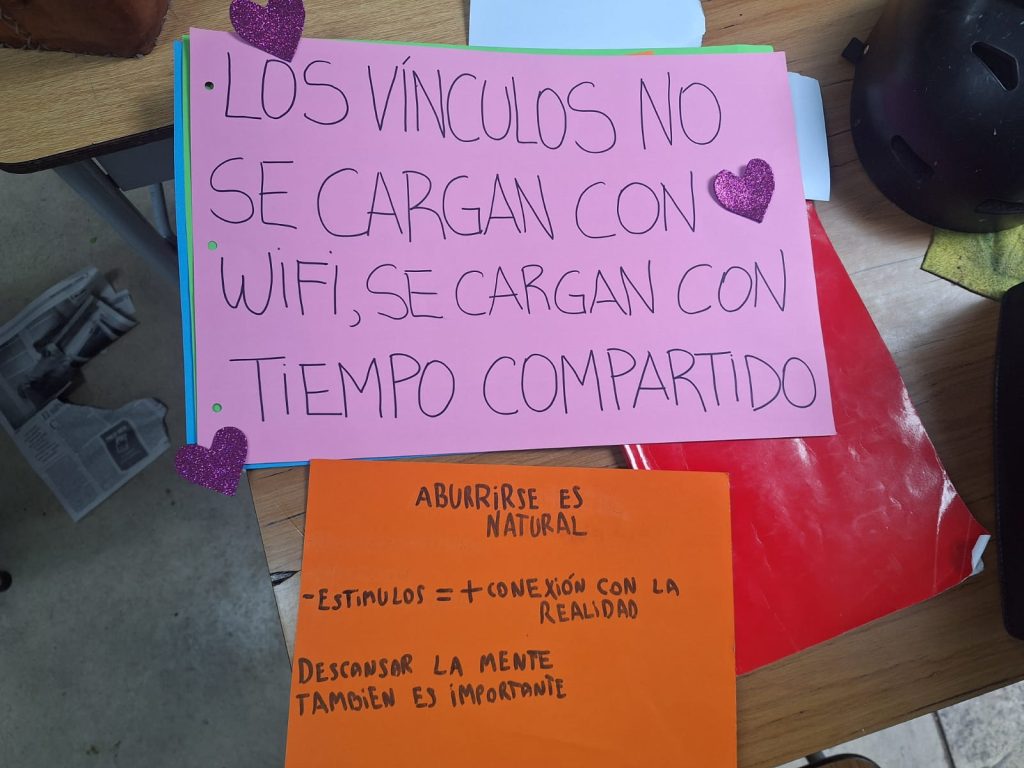 LOS VÍNCULOS NO
SE CARGAN CON
WiFi, SE CARGAN CON
TiEMPO COMPARTiDO
ABURRiRSE ES
NATURAL
-ESTiMULOS = + CONEXIÓN CON LA
REALIDAD
DESCANSAR LA MENTE
TAMBIEN ES iMPORTANTE